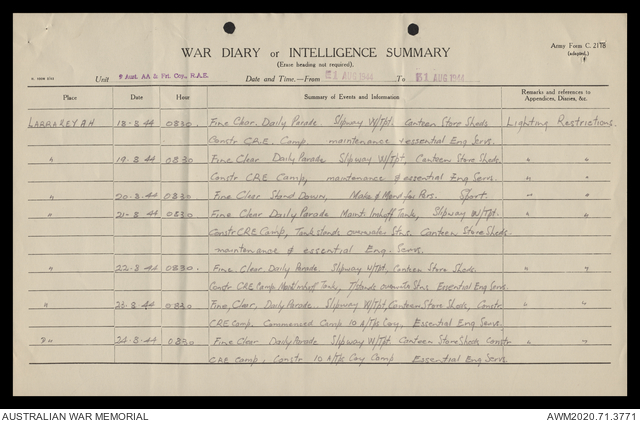 Army Form C. 2118
(adapted.)
WAR DIARY or INTELLIGENCE SUMMARY
(Erase heading not required).
Unit 9 Aust. AA & Frt. Coy. R.A.E. Date and Time.—From AUG 1944 To 31 AUG 1944
Place Date Hour Summary of Events and Information Remarks and references to
Appendices, Diaries, &c.
LABRALEYAH 18-8-44 0830. Fine Clear. Daily Parade. Slipway W/Tpt. Canteen Store Sheds Lighting Restrictions.
Constr C.R.E. Camp. maintenance & essential Eng Servs.
" 19-8-44 0830 Fine Clear Daily Parade Slipway W/Tpt. Canteen Store Sheds. " "
Constr CRE Camp, maintenance & essential Eng Servs. " "
" 20-8-44 0830 Fine Clear Stand Down, Make & Mend for Pers. Sport. " "
" 21-8-44 0830 Fine Clear Daily Parade Maint. Imhoff Tank, Slipway W/Tpt. " "
Constr CRE Camp, Tank stands Stns. Canteen Store Sheds.
maintenance & essential Eng. Servs.
" 22-8-44 0830. Fine Clear. Daily Parade. Slipway W/Tpt, Canteen Store Sheds. " "
Constr CRE Camp. Imhoff Tank, T/stands Stns Essential Eng Servs.
" 23-8-44 0830 Fine, Clear, Daily Parade. Slipway W/Tpt, Canteen Store Sheds, Constr " "
CRE Camp. Commenced Camp 10 A/Tps Coy. Essential Eng Servs.
" 24-8-44 0830 Fine Clear Daily Parade Slipway W/Tpt Canteen Store Sheds Constr " "
CRE Camp, Constr 10 A/Tps Coy Camp Essential Eng Servs.
AUSTRALIAN WAR MEMORIAL AWM2020.71.3771